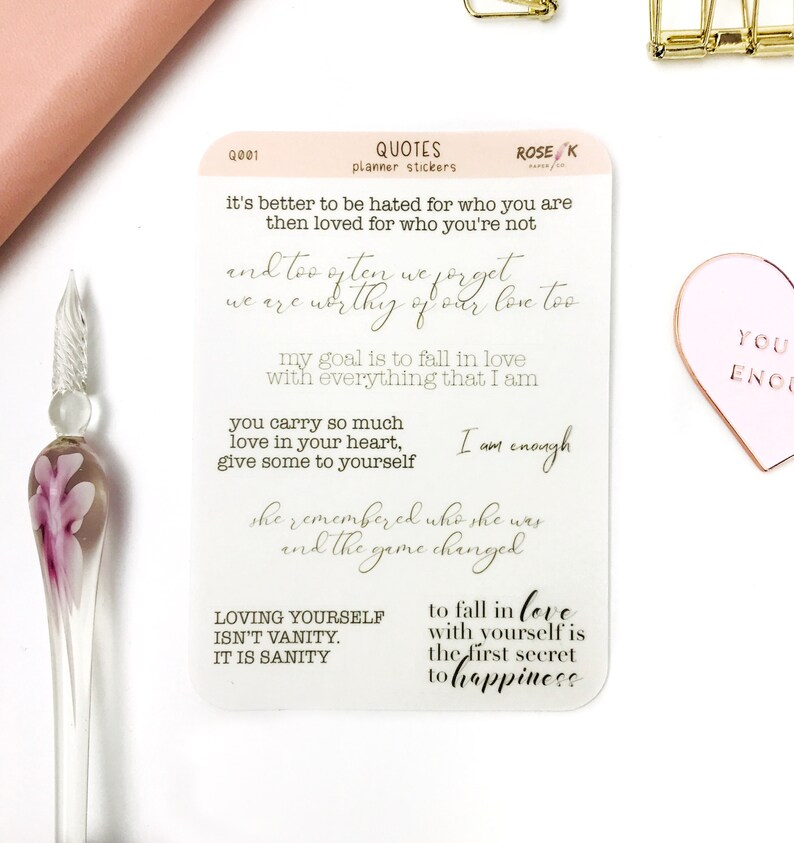 Q001
QUOTES
planner stickers
ROSE K
PAPER CO.
it's better to be hated for who you are
then loved for who you're not
and too often we forget
we are worthy of our love too
my goal is to fall in love
with everything that I am
you carry so much
love in your heart,
give some to yourself
I am enough
she remembered who she was
and the game changed
LOVING YOURSELF
ISN'T VANITY.
IT IS SANITY
to fall in love
with yourself is
the first secret
to happiness
YOU
ENOU